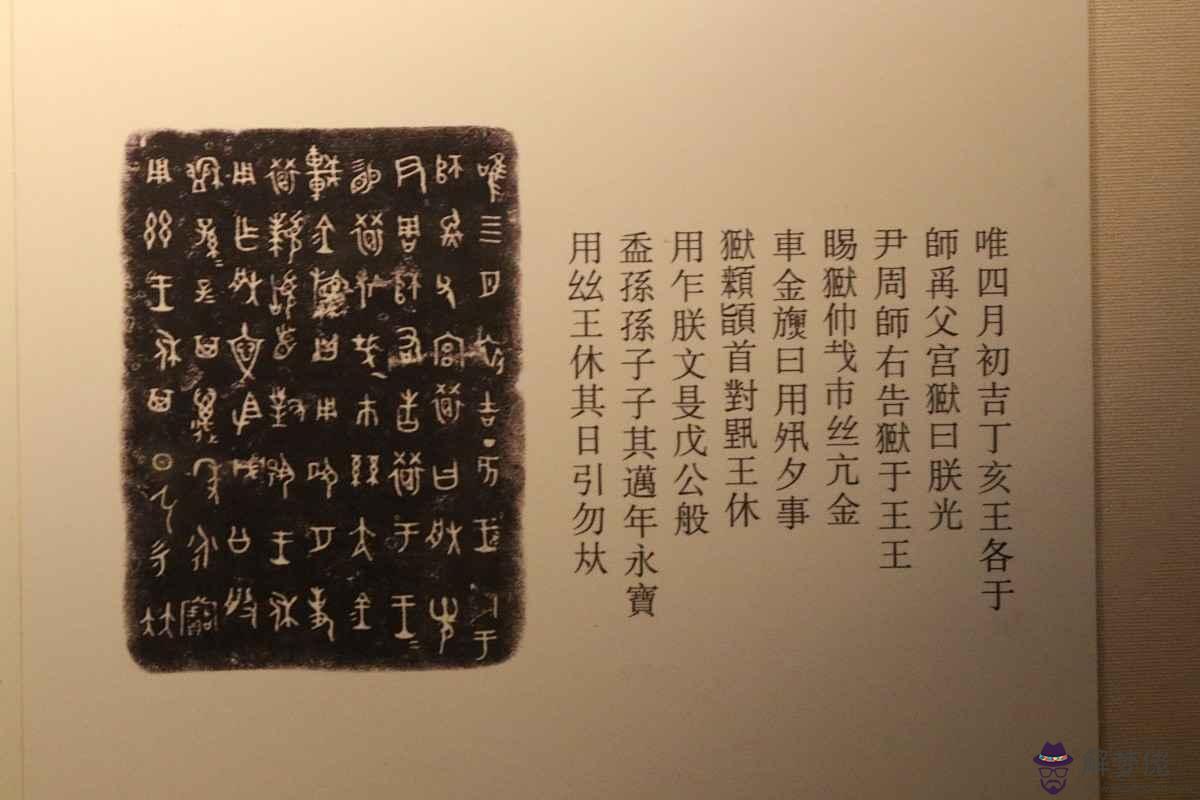 唯四月初吉丁亥王各于
師再父宮獄曰朕光
尹周師右告獄于王王
賜獄仲𢦏巿丝亢金
車金旟曰用夙夕事
獄顙䭫首對揚王休
用乍朕文旻戊公般
盉孫孫子子其邁年永寶
用丝王休其日引勿㚘
解梦佬